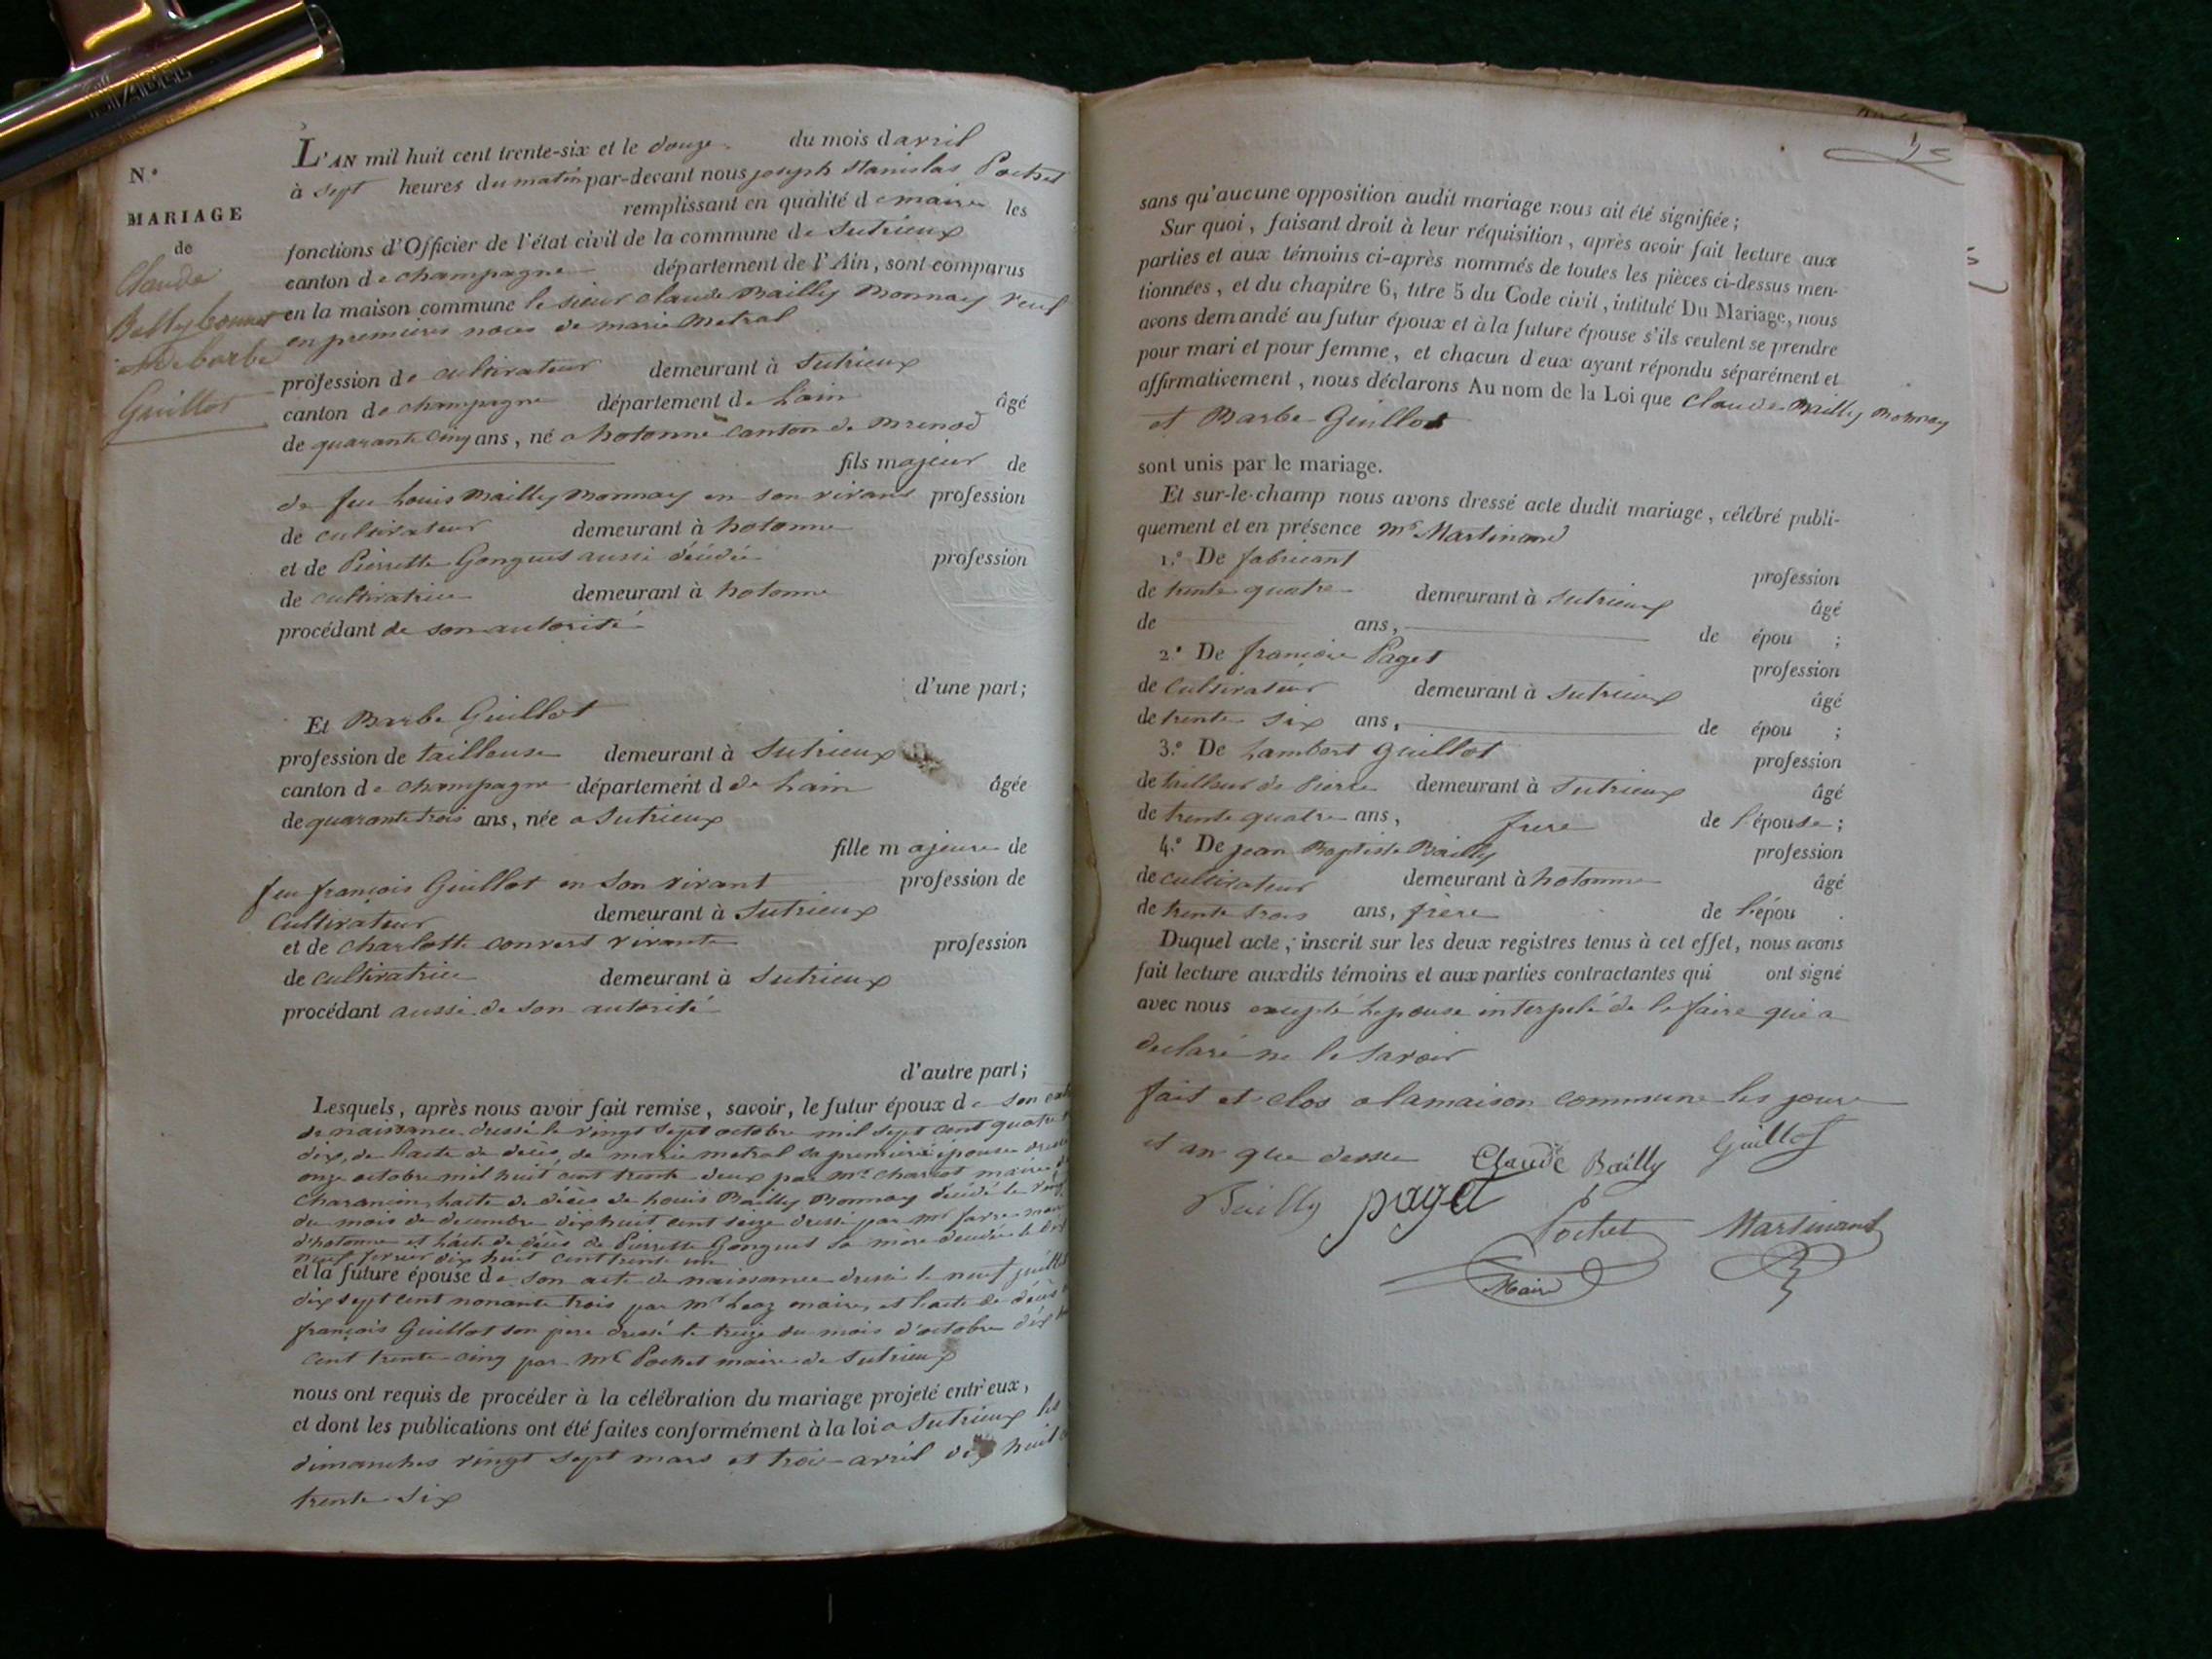 N.°
MARIAGE
de
Claude
Bailly bonnet
et de barbe
Guillot
L'AN mil huit cent trente-six et le douze du mois d avril
à sept heures du matin par-devant nous joseph stanislas Pochet
remplissant en qualité d e maire les
fonctions d'Officier de l'état civil de la commune de Sutrieux
canton de champagne département de l'Ain, sont comparus
en la maison commune le sieur claude Bailly Monnay veuf
en premieres noces de marie Metral
profession de cultivateur demeurant à Sutrieux
canton de champagne département de Lain âgé
de quarante cinq ans, né a hotonne canton de Brenod
fils majeur de
de feu Louis Bailly Monnay en son vivant profession
de cultivateur demeurant à hotonne
et de Pierrette Gonguet aussi décédée profession
de cultivatrice demeurant à hotonne
procédant de son autorité
d'une part;
Et Barbe Guillot
profession de tailleuse demeurant à Sutrieux
canton de champagne département d de Lain âgée
de quarante trois ans, née a Sutrieux
fille majeure de
feu françois Guillot en son vivant profession de
Cultivateur demeurant à Sutrieux
et de charlotte convert vivante profession
de cultivatrice demeurant à Sutrieux
procédant aussi de son autorité
d'autre part;
Lesquels, après nous avoir fait remise, savoir, le futur époux de son
de naissance dressé le vingt sept octobre mil sept cent quatre
dix, de l'acte de décès de marie metral sa premiere épouse
onze octobre mil huit cent trente deux par Mr maire
lacte de décès de Louis Bailly Monnay décédé le
du mois de decembre dix huit cent seize dressé par mr
d'hotonne et lácte de décès de Pierrette Gonguet sa mere décédée le
neuf fevrier dix huit cent trente un
et la future épouse de son acte de naissance dressé le neuf juillet
dix sept cent nonante trois par mr maire, et lacte de décès
françois Guillot son pere dressé le treize du mois d'octobre dix
cent trente cinq par Mr Pochet maire de Sutrieux
nous ont requis de procéder à la célébration du mariage projeté entr'eux,
et dont les publications ont été faites conformément à la loi a Sutrieux les
dimanches vingt sept mars et trois avril dix huit
trente six
sans qu'aucune opposition audit mariage nous ait été signifiée;
Sur quoi, faisant droit à leur réquisition, après avoir fait lecture aux
parties et aux témoins ci-après nommés de toutes les pièces ci-dessus men-
tionnées, et du chapitre 6, titre 5 du Code civil, intitulé Du Mariage, nous
avons demandé au futur époux et à la future épouse s'ils veulent se prendre
pour mari et pour femme, et chacun d'eux ayant répondu séparément et
affirmativement, nous déclarons Au nom de la Loi que Claude Bailly Monnay
et Barbe Guillot
sont unis par le mariage.
Et sur-le-champ nous avons dressé acte dudit mariage, célébré publi-
quement et en présence Mr Martinand
1.° De fabricant profession
de trente quatre demeurant à Sutrieux âgé
de ans, de épou ;
2.° De françois Paget profession
de cultivateur demeurant à Sutrieux âgé
de trente six ans, de épou ;
3.° De Lambert Guillot profession
de tailleur de Pierre demeurant à Sutrieux âgé
de trente quatre ans, frere de l'épouse;
4.° De jean Baptiste Bailly profession
de cultivateur demeurant à hotonne âgé
de trente trois ans, frère de l'épou .
Duquel acte, inscrit sur les deux registres tenus à cet effet, nous avons
fait lecture auxdits témoins et aux parties contractantes qui ont signé
avec nous excepté Lepouse interpelé de le faire qui a
declaré ne le savoir
fait et clos a lamaison commune les jour
et an que dessu Claude Bailly Guillot
Bailly paget
Pochet Martinand
Maire